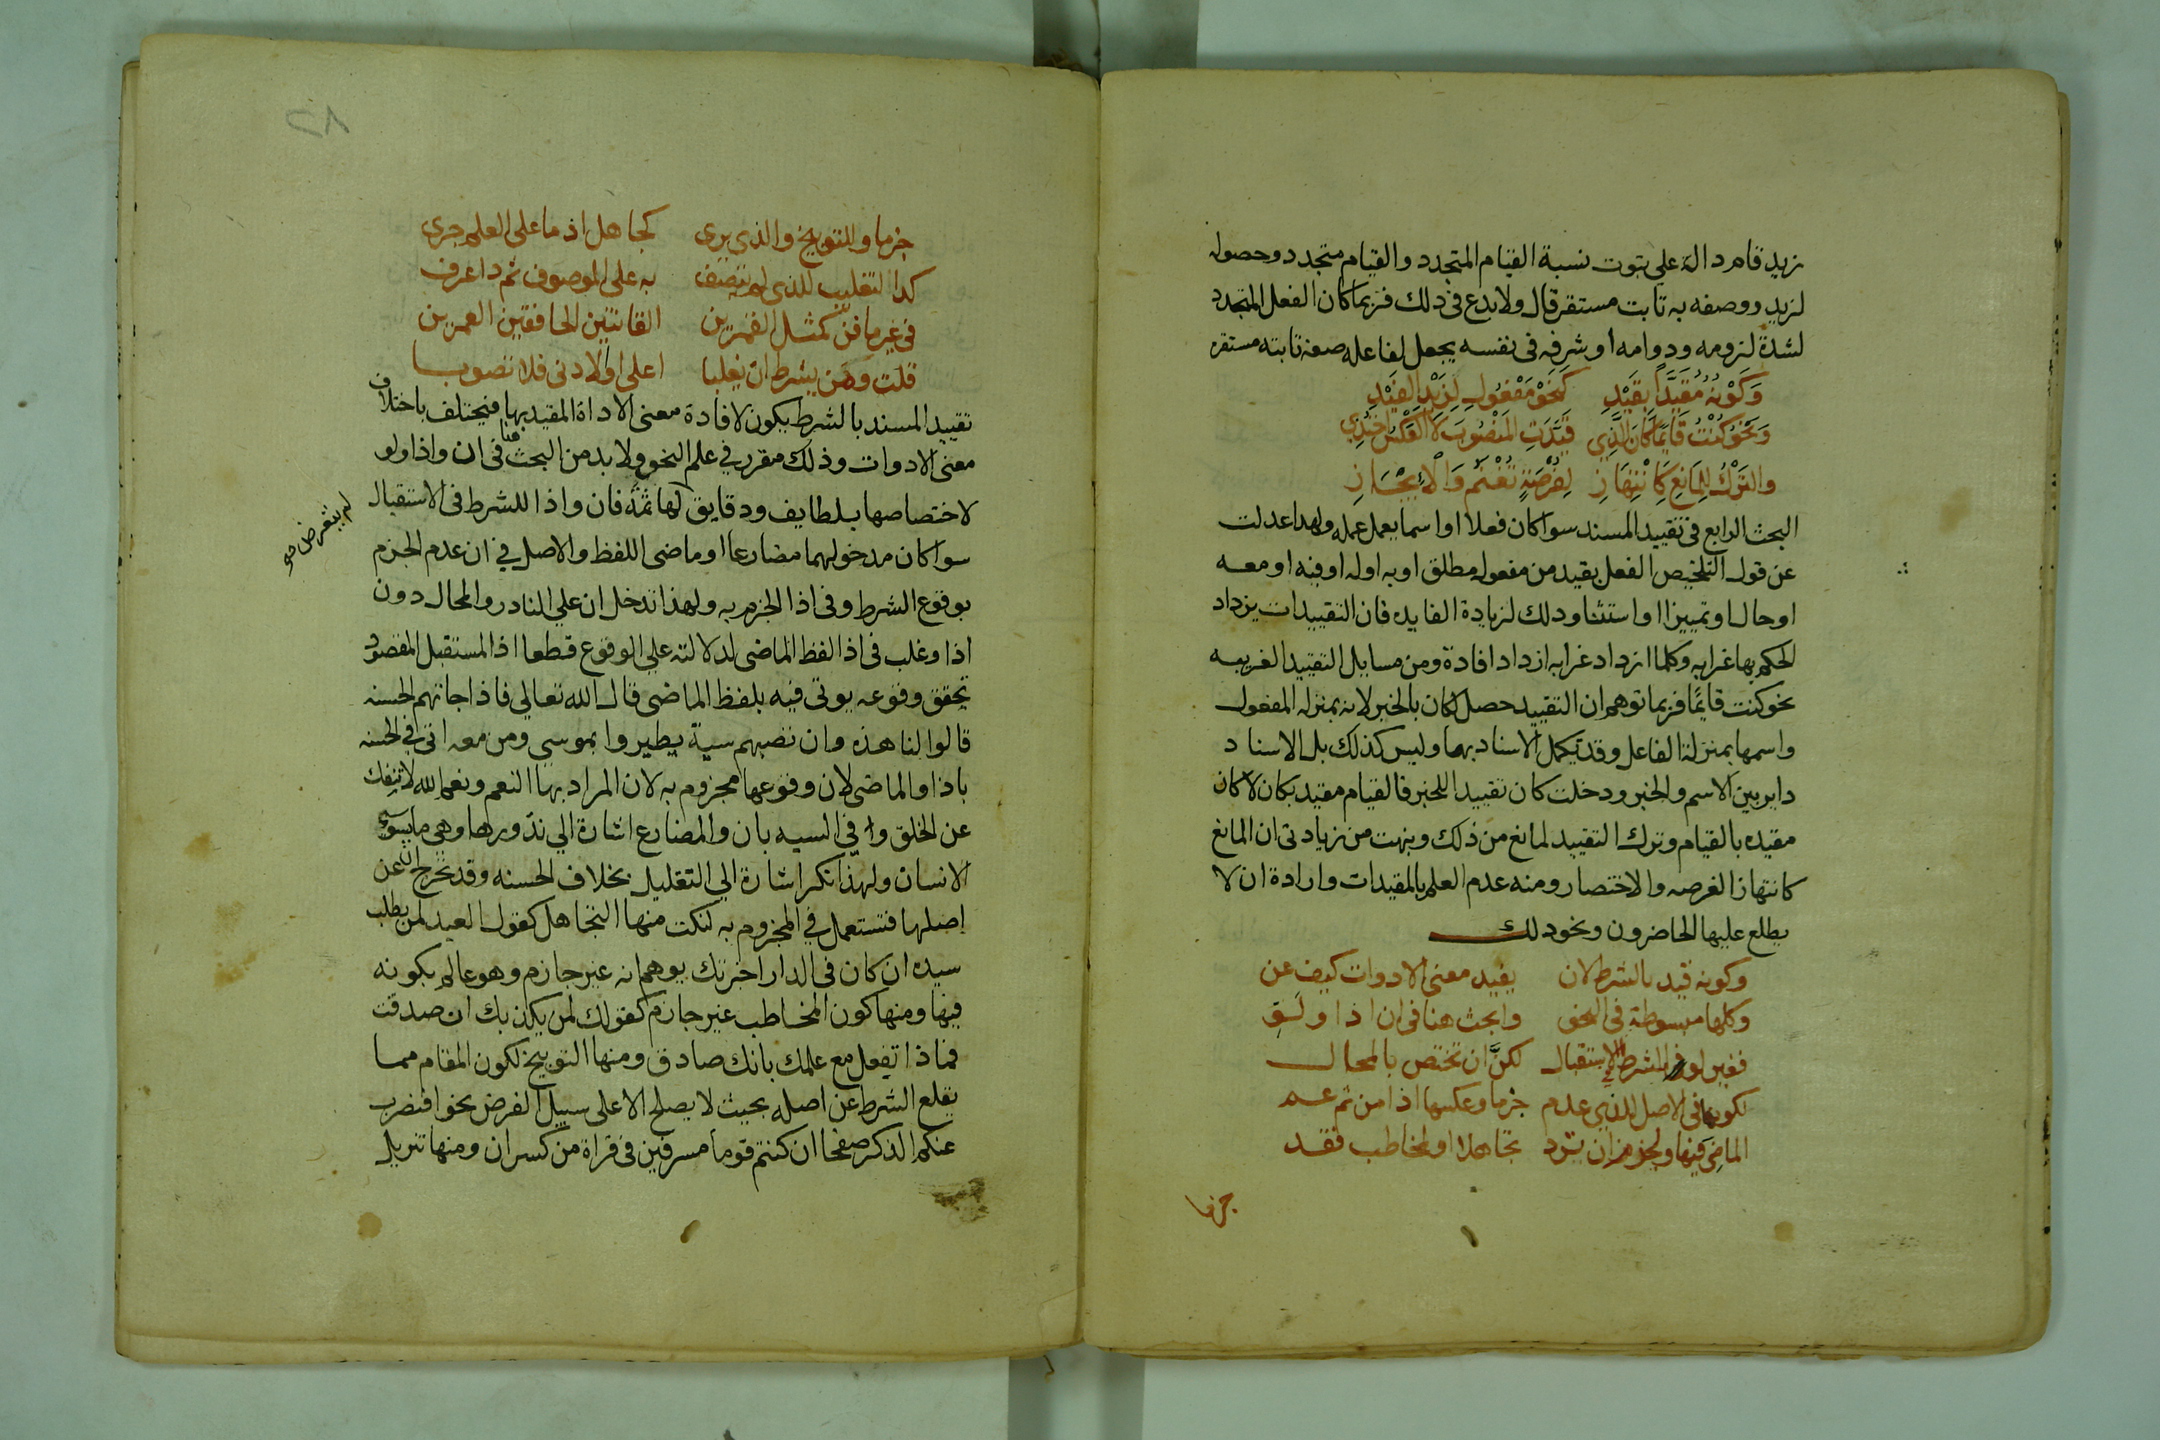 زيد قام دالة علي ثبوت نسبة القيام المتجدد والقيام متجدد وحصوله
لزيد ووصفه به ثابت مستقر قال ولا بدع في ذلك فربما كان الفعل المتجدد
لشدة لزومه ودوامه او شرفه في نفسه يجعل لفاعله صفة ثابته مستقره
وَكَوْنُهُ مُقَيَّداً بِقَيْدِ كَنَحْوِ مَفْعُولٍ لِزَيْدِ الفَيْدِ
وَنَحْوُ كُنْتُ قَايِمًا كَانَ الَّذِي قَيَّدَتِ المَنْصُوبَ لَا العَكْسُ احْتُذِي
وَالتَرْكُ لِلمَانِعِ كَانْتِهَازِ لِفُرْصَةٍ تُغْنَمُ وَالْإِيْجَازِ
البحث الرابع في تقييد المسند سوا كان فعلا او اسما يعمل عمله ولهذا عدلت
عن قول التلخيص الفعل يقيد من مفعول مطلق او به او له او فيه او معه
او حال او تمييز او استثنا ودلك لزيادة الفايده فان التقييدات يزداد
الحكم بها غرابه وكلما ازداد غرابه ازداد افادة ومن مسايل التقييد الغريبه
نحو كنت قايمًا فربما توهم ان التقييد حصل لكان بالخبر لانه بمنزله المفعول
واسمها بمنزلة الفاعل وقد تكمل الاسناد بهما وليس كذلك بل الاسناد
داير بين الاسم والخبر ودخلت كان تقييدا للخبر فالقيام مقيد بكان لا كان
مقيده بالقيام وترك التقييد لمانع من ذلك ونبهت من زيادتي ان المانع
كانتهاز الفرصه والاختصار ومنه عدم العلم بالمقيدات وارادة ان لا
يطلع عليها الحاضرون ونحو دلك
وكونه قيد بالشرط لان يفيد معني الادوات كيف عن
وكلها مبسوطة في النحو وابحث هنا في ان اذا ولو
فغير لو في الشرط الاستقبال لكنَّ ان تختص بالمحال
لكونها في الاصل للذي عدم جزما وعكسها اذا من ثم عم
الماضي فيها ولجزم ان ترد تجاهلا او لمخاطب فقد
جزما
٨٢
جزما وللتوبيخ والذي يري كجاهل اذ ما على العلم جري
كذا لتغليب للذي لم يتصف به على الموصوف ثم ذا عرف
في غير ما فنّ كمثل القمرين القانتين الخافقين العمرين
قلت ومَن يشرط ان يغلبا اعلي او الادني فلا تصوبا
تقييد المسند بالشرط يكون لافادة معنى الاداة المقيد بها فيختلف باختلاف
معني الادوات وذلك مقرر في علم النحو ولا بد من البحث هنا في ان واذا ولو
لاختصاصها بلطايف ودقايق لها ثمّة فان واذا للشرط في الاستقبال
لم يتعرض صح
سوا كان مدخولهما مضارعا او ماضي اللفظ والاصل في ان عدم الجزم
بوقوع الشرط وفي اذا الجزم به ولهذا تدخل ان علي النادر والمحال دون
اذا وغلب في اذا لفظ الماضي لدلالته علي الوقوع قطعا اذ المستقبل المقصود
تحقق وقوعه يوتي فيه بلفظ الماضي قال الله تعالي فاذا جاتهم الحسنه
قالوا لنا هذه وان تصبهم سيية يطيروا بموسي ومن معه اتي في الحسنه
باذا والماضي لان وقوعها مجزوم به لان المراد بها النعم ونعم الله لا تنفك
عن الخلق واتي في السيه بان والمضارع اشارة الي ندورها وهي ما يسوء
الانسان ولهذا نكر اشارة الي التقليل بخلاف الحسنه وقد تخرج ان عن
اصلها فتستعمل في المجزوم به لنكت منها التجاهل كقول العبد لمن يطلب
سيده ان كان في الدار اخبرتك يوهم انه غير جازم وهو عالم بكونه
فيها ومنها كون المخاطب غير جازم كقولك لمن يكذبك ان صدقت
فماذا تفعل مع علمك بانك صادق ومنها التوبيخ لكون المقام مما
يقلع الشرط عن اصله بحيث لا يصلح الا على سبيل الفرض نحو افنضرب
عنكم الذكر صفحا ان كنتم قوما مسرفين في قراة من كسر ان ومنها تنزيل